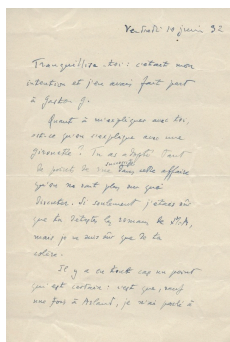 Vendredi 10 juin 32
Tranquillise-toi : c'était mon
intention et j'en avais fait part
à Gaston G.
Quant à m'expliquer avec toi,
est-ce qu'on s'explique avec une
girouette ? Tu as adopté tant
de points de vue successifs dans cette affaire
qu'on ne sait plus sur quoi
discuter. Si seulement j'étais sûr
que tu détestes les romans de
mais je ne suis sûr que de ta
colère.
Il y a en tout cas un point
qui est certain : c'est que, sauf
une fois à , je n'ai parlé à